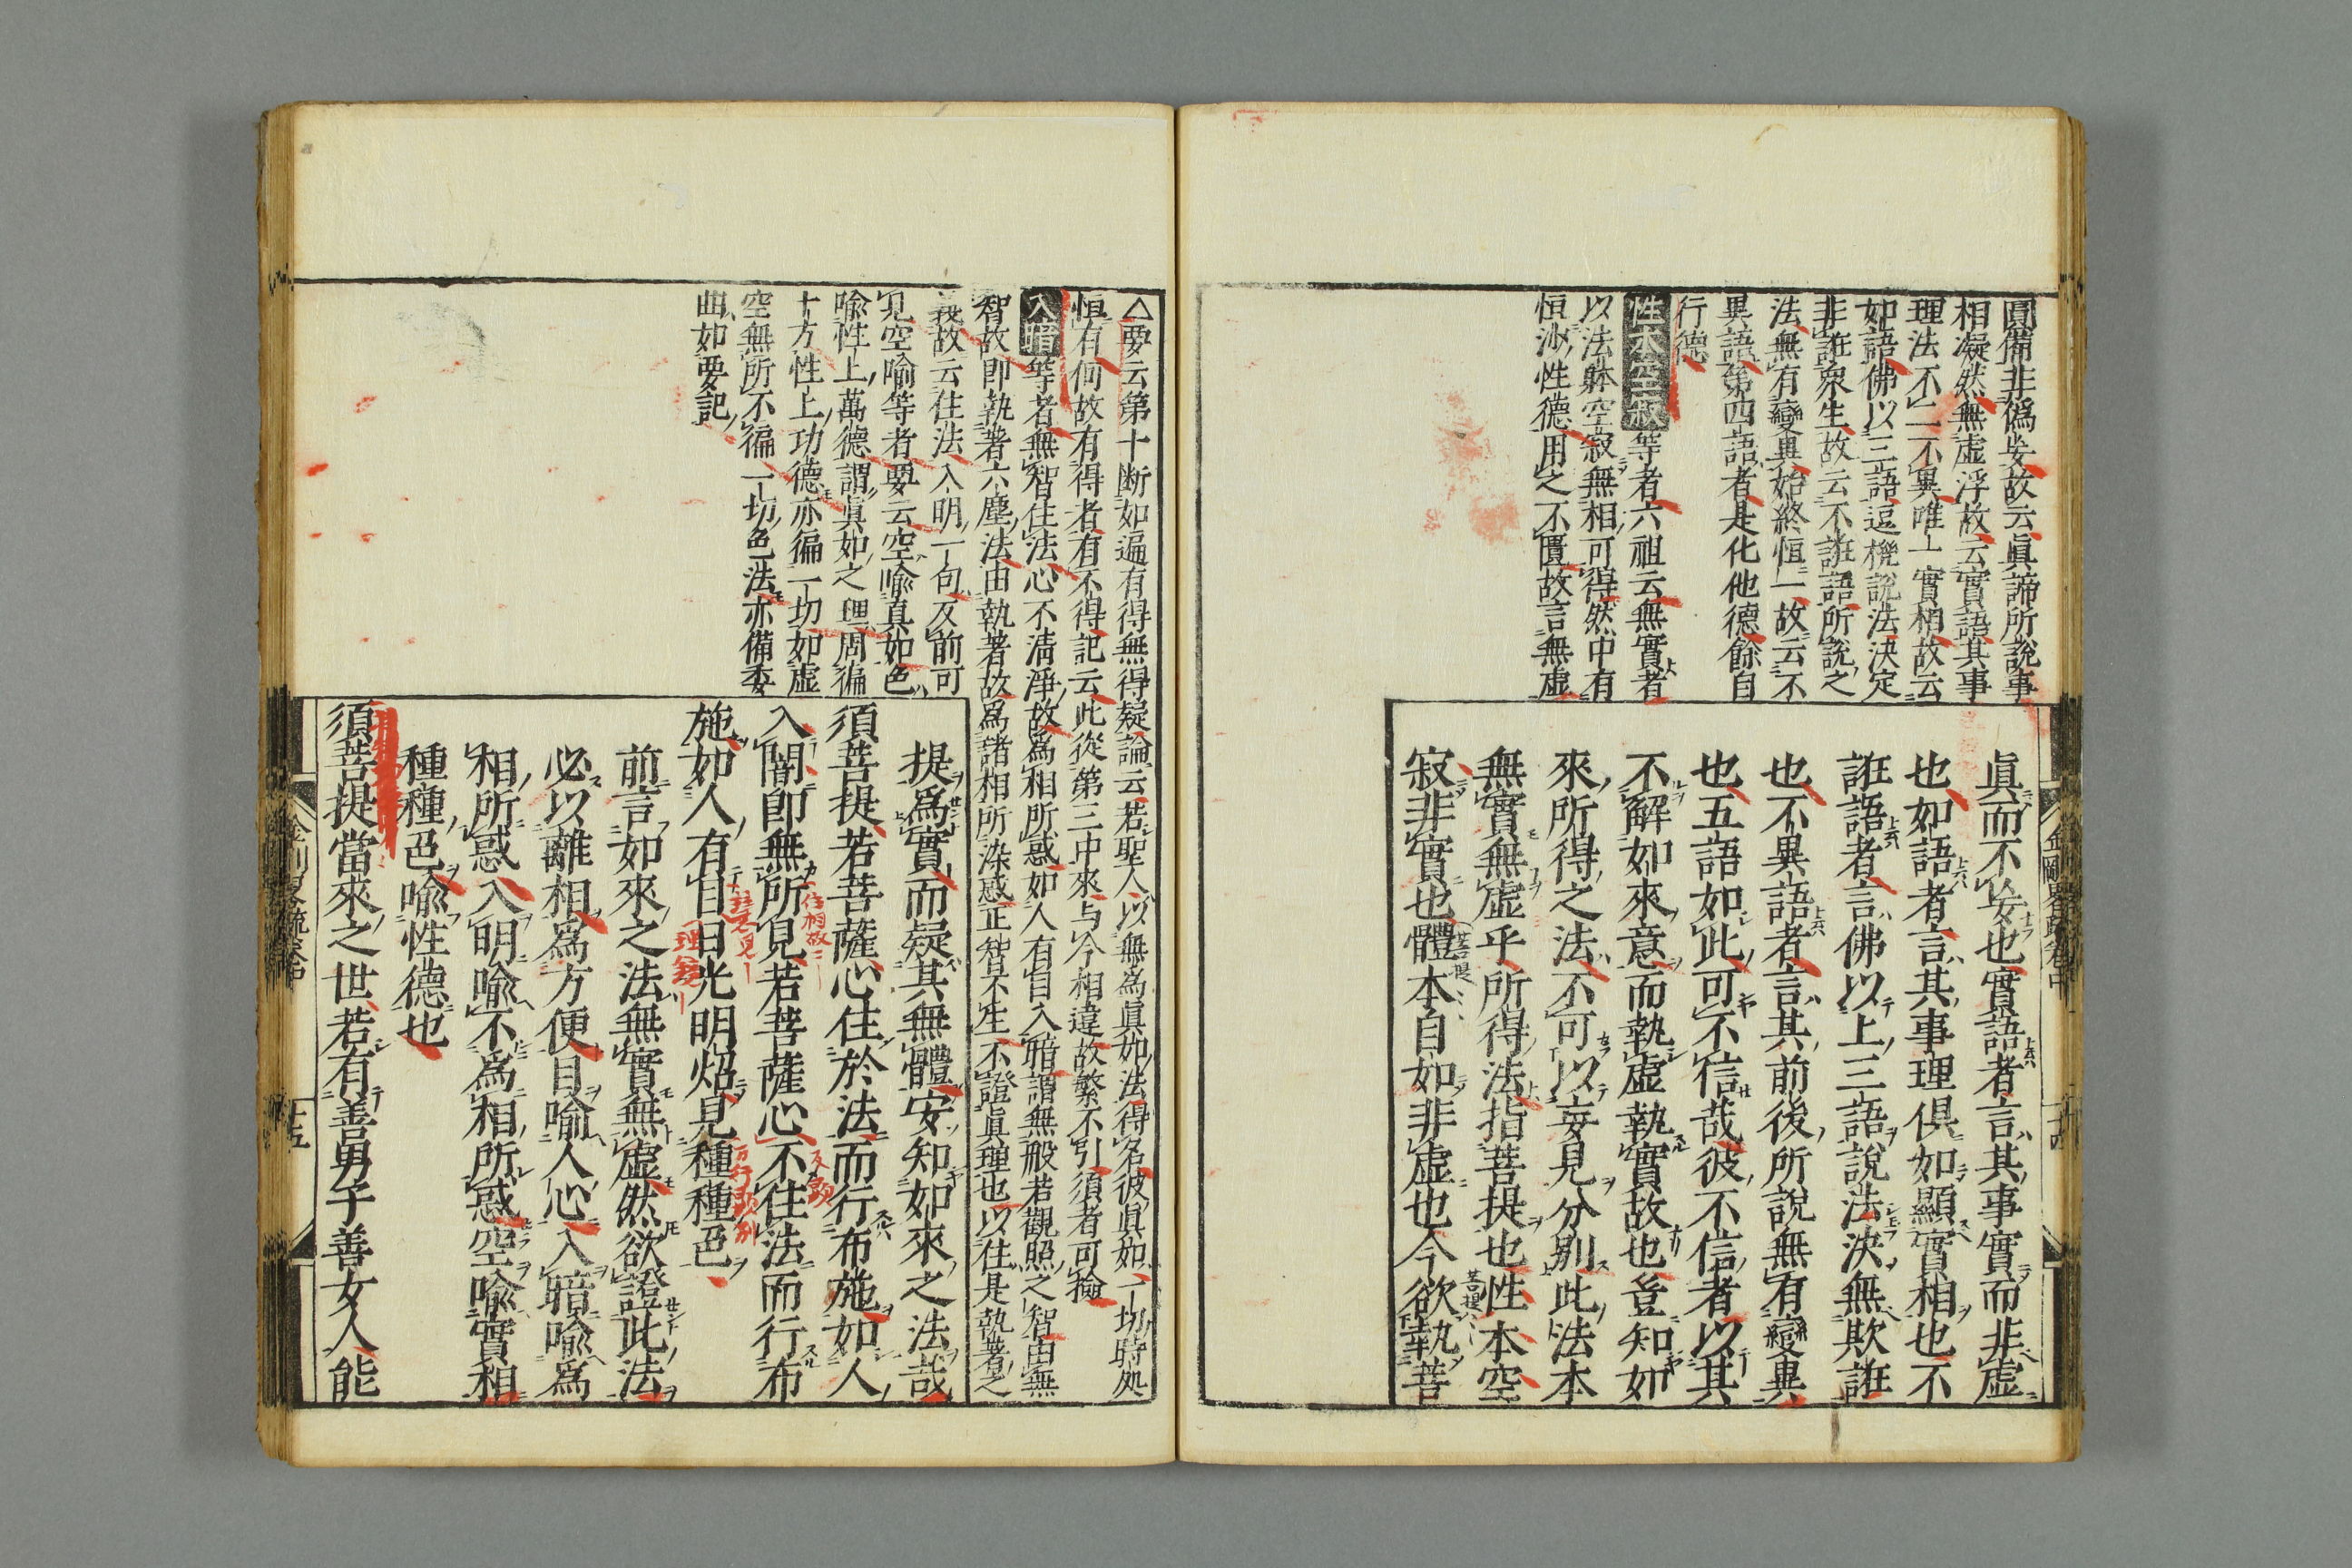 圓備非僞妄故云眞諦所說事
相凝然無虛浮故云實語其事
理法不二不異唯一實相故云
如語佛以三語逗機說法決定
非誑衆生故云不誑語所說之
法無有變異始終恒一故云不
異語第四語者是化他德餘自
行德
性本空寂等者六祖云無實者
以法躰空寂無相可得然中有
恒沙性德用之不匱故言無虛
眞而不妄也實語者言其事實而非虛
也如語者言其事理倶如顯實相也不
誑語者言佛以上三語說法決無欺誑
也不異語者言其前後所說無有變異
也五語如此可不信哉彼不信者以其
不解如來意而執虛執實故也豈知如
來所得之法不可以妄見分別此法本
無實無虛乎所得法指菩提也性本空
寂非實也體本自如非虛也今欲執菩
△要云第十斷如遍有得無得疑論云若聖人以無爲眞如法得名彼眞如一切時処
恒有何故有得者有不得記云此從第三中來与今相違故繁不引須者可撿
入暗等者無智住法心不淸淨故爲相所惑如人有目入暗謂無般若觀照之智由無
智故即執著六塵法由執著故爲諸相所染惑正智不生不證眞理也以住是執著之
義故云住法入明一句反前可
見空喻等者要云空喻真如色
喻性上萬德謂眞如之理周徧
十方性上功德亦徧一切如虛
空無所不徧一切色法亦備委
曲如要記
提爲實而疑其無體安知如來之法哉
須菩提若菩薩心住於法而行布施如人
入闇即無所見若菩薩心不住法而行布
施如人有目日光明炤見種種色
前言如來之法無實無虛然欲證此法
必以離相爲方便目喻人心入暗喻爲
相所惑入明喻不爲相所惑空喻實相
種種色喻性德也
須菩提當來之世若有善男子善女人能